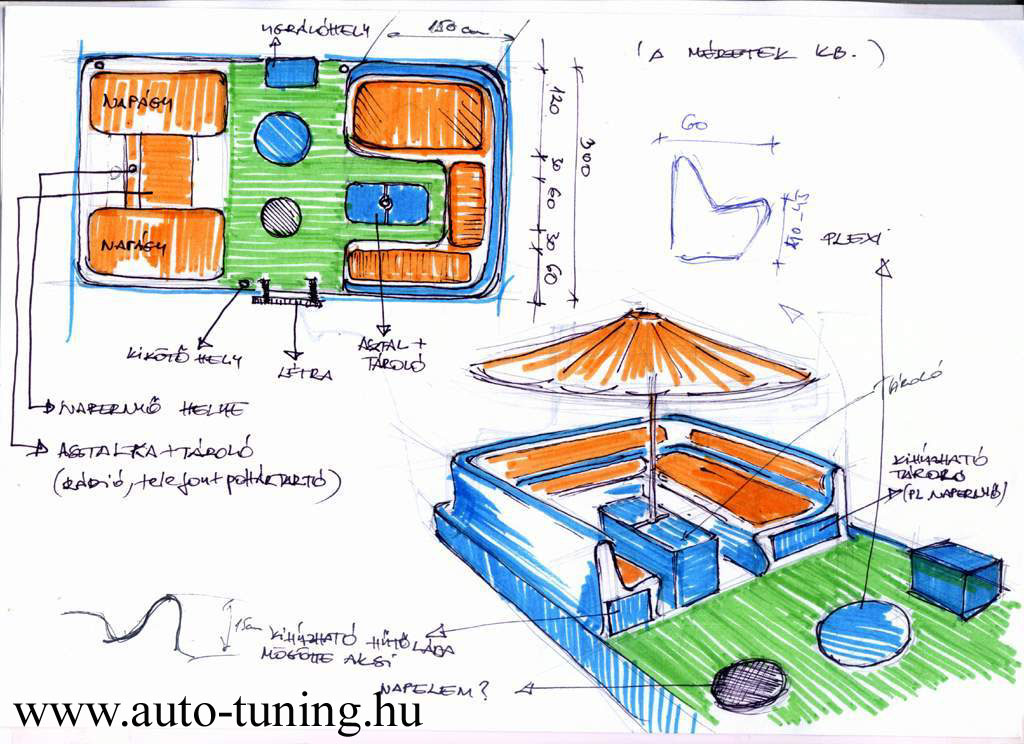 UGRÁLÓHELY
150 cm
(A MÉRETEK KB.)
NAPÁGY
NAPÁGY
120
30
60
30
60
300
60
40-45
PLEXI
KIKÖTŐ HELY
LÉTRA
ASZTAL +
TÁROLÓ
NAPERNYŐ HELYE
ASZTALKA + TÁROLÓ
(RÁDIÓ, telefon + POHÁRTARTÓ)
tároló
KIHÚZHATÓ
TÁROLÓ
(PL NAPERNYŐ)
15cm
KIHÚZHATÓ HŰTŐLÁDA
MÖGÖTTE AKSI
NAPELEM?
www.auto-tuning.hu